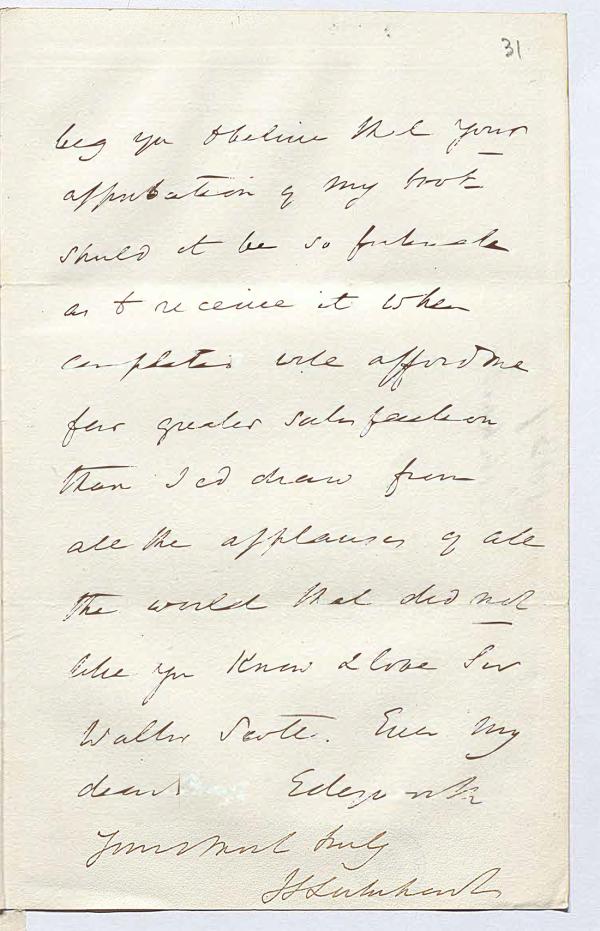 31
beg you to believe that your
approbation of my book
should it be so fortunate
as to receive it when
completed will afford me
far greater satisfaction
than I cd draw from
all the applauses of all
the world that did not
like you know & love Sir
Walter Scott. Ever my
dear Edgeworth
Yours most truly
JG Lockhart